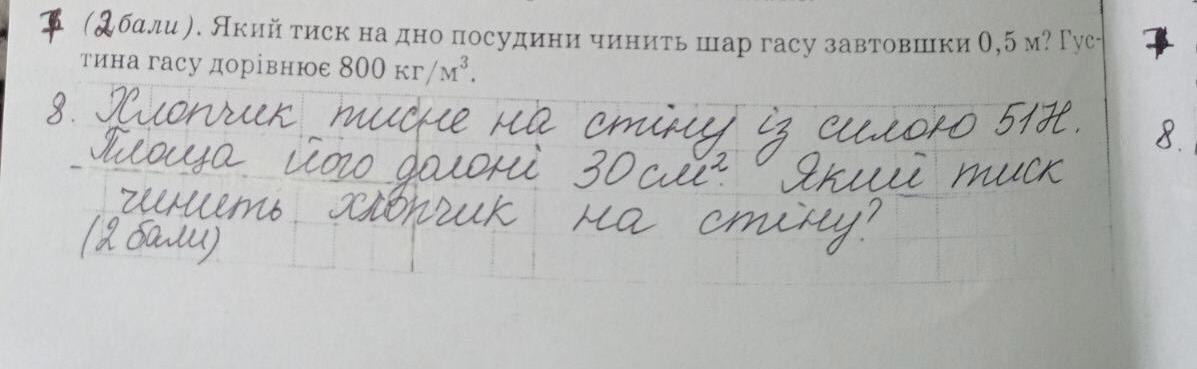 7 (2 бали). Який тиск на дно посудини чинить шар гасу завтовшки 0,5 м? Гус-
тина гасу дорівнює 800 кг/м³.
8. Хлопчик тисне на стіну із силою 51Н.
Площа його долоні 30 см². Який тиск
чинить хлопчик на стіну?
(2 бали)
7
8.